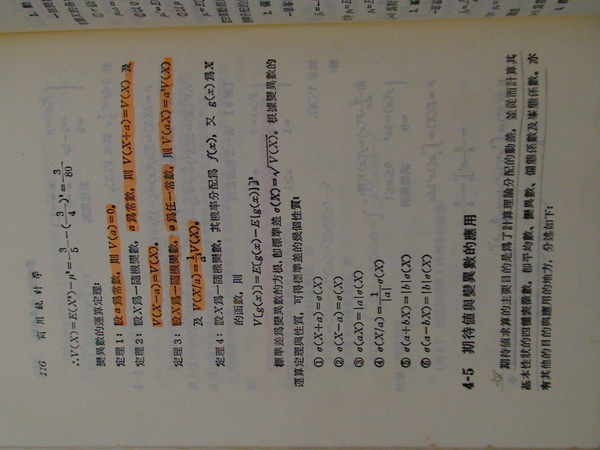 116 商用統計學
∴V(X)=E(X²)-μ²=3/5-(3/4)²=3/80
變異數的運算定理:
定理1: 設a爲常數, 則 V(a)=0。
定理2: 設X爲一隨機變數, a爲常數, 則 V(X+a)=V(X) 及
V(X-a)=V(X)。
定理3: 設X爲一隨機變數, a爲任一常數, 則 V(aX)=a²V(X)
及 V(X/a)=1/a²V(X)。
定理4: 設X爲一隨機變數, 其機率分配爲 f(x), 又 g(x)爲X
的函數, 則
V[g(x)]=E[g(x)-E{g(x)}]²
標準差爲變異數的方根, 卽標準差 σ(X)=√V(X)。根據變異數的
運算定理與性質, 可得標準差的幾個性質:
① σ(X+a)=σ(X)
② σ(X-a)=σ(X)
③ σ(aX)=|a|σ(X)
④ σ(X/a)=1/|a|σ(X)
⑤ σ(a+bX)=|b|σ(X)
⑥ σ(a-bX)=|b|σ(X)
4-5 期待值與變異數的應用
期待值求算的主要目的是爲了計算理論分配的動差, 並從而計算其
基本性狀的四種表徵數, 卽平均數、變異數、偏態係數及峯態係數。亦
有其他的目的與應用的地方, 分述如下: